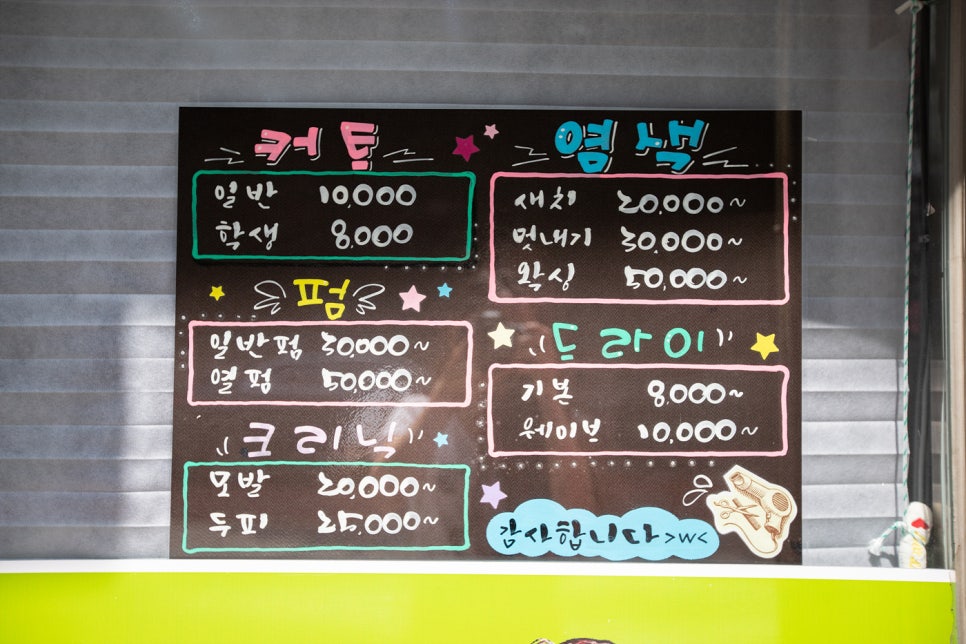 커트
일반 10,000
학생 8,000
펌
일반펌 30,000~
열펌 50,000~
크리닉
모발 20,000~
두피 25,000~
염색
새치 20,000~
멋내기 30,000~
왁싱 50,000~
드라이
기본 8,000~
웨이브 10,000~
감사합니다 >w<